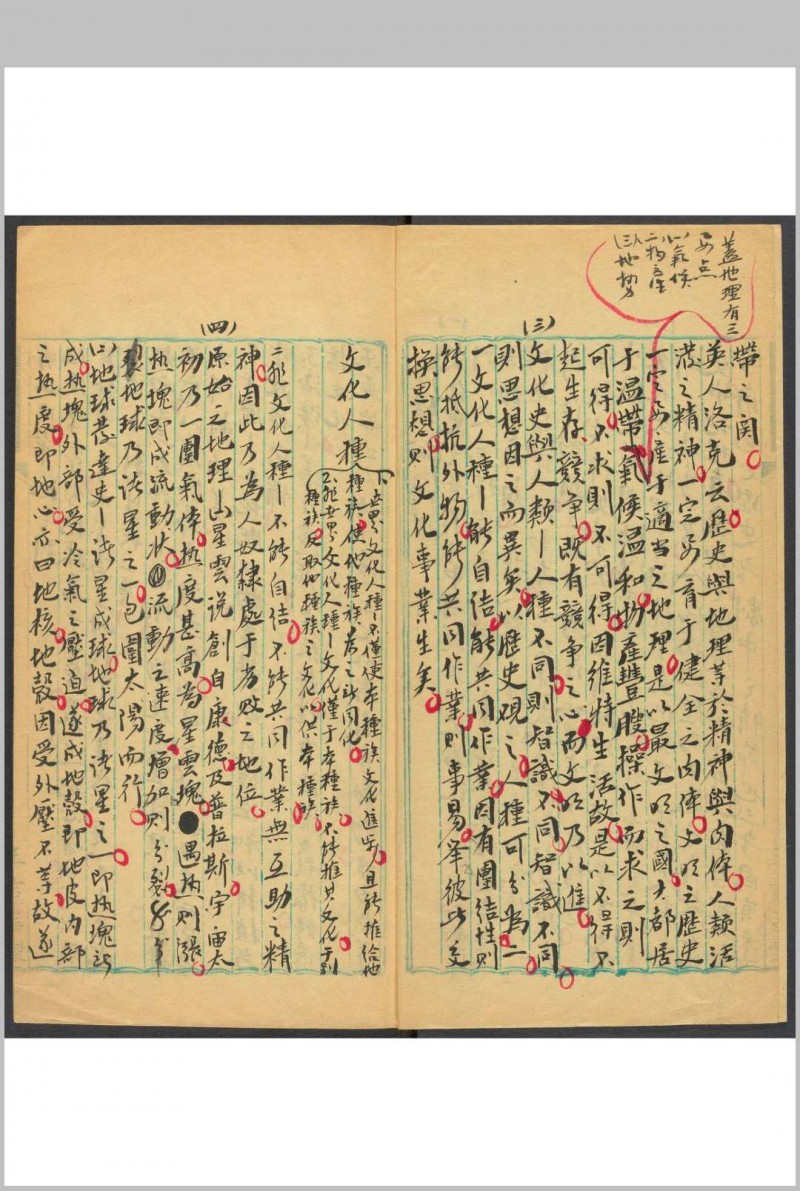 蓋地理有三
要点
(一)氣候
二物產
(三)地勢
(三)
帶之関
英人洛克云歷史與地理等於精神與肉体人類活
潑之精神一定要育于健全之肉体文明之歷史
一定要產于適当之地理是以最文明之國大都居
于温帶氣候温和物產豐腴操作而求之則
可得不求則不可得因維持生活故是以不得不
起生存競争既有競争之心而文明乃以進
文化史與人類—人種不同則智識不同智識不同
則思想因之而異矣以歷史观之人種可分為二
一文化人種—能自结能共同作業因有團结性則
能抵抗外物能共同作業則事易舉彼此交
換思想則文化事業生矣
(四)
文化人種
世界文化人種—不僅使本種族文化進步且能推给他
種族使他種族為之所同化
2.非世界文化人種—文化僅于本種族不能推其文化于别
種族反取他種族之文化以供本種族
二非文化人種—不能自结不能共同作業無互助之精
神因此乃為人奴隸處于劣敗之地位
原始之地理—山星雲説創自康德及普拉斯宇宙太
初乃一團氣体热度甚高為星雲塊遇热則漲
热塊即成流動状流動之速度增加則分裂
裂地球乃諸星之一包圍太陽而行
(二)地球發達史—諸星成球地球乃諸星之一即热塊所
成热塊外部受冷氣之壓迫遂成地殼即地皮内部
之热度即地心亦曰地核地殼因受外壓不等故遂